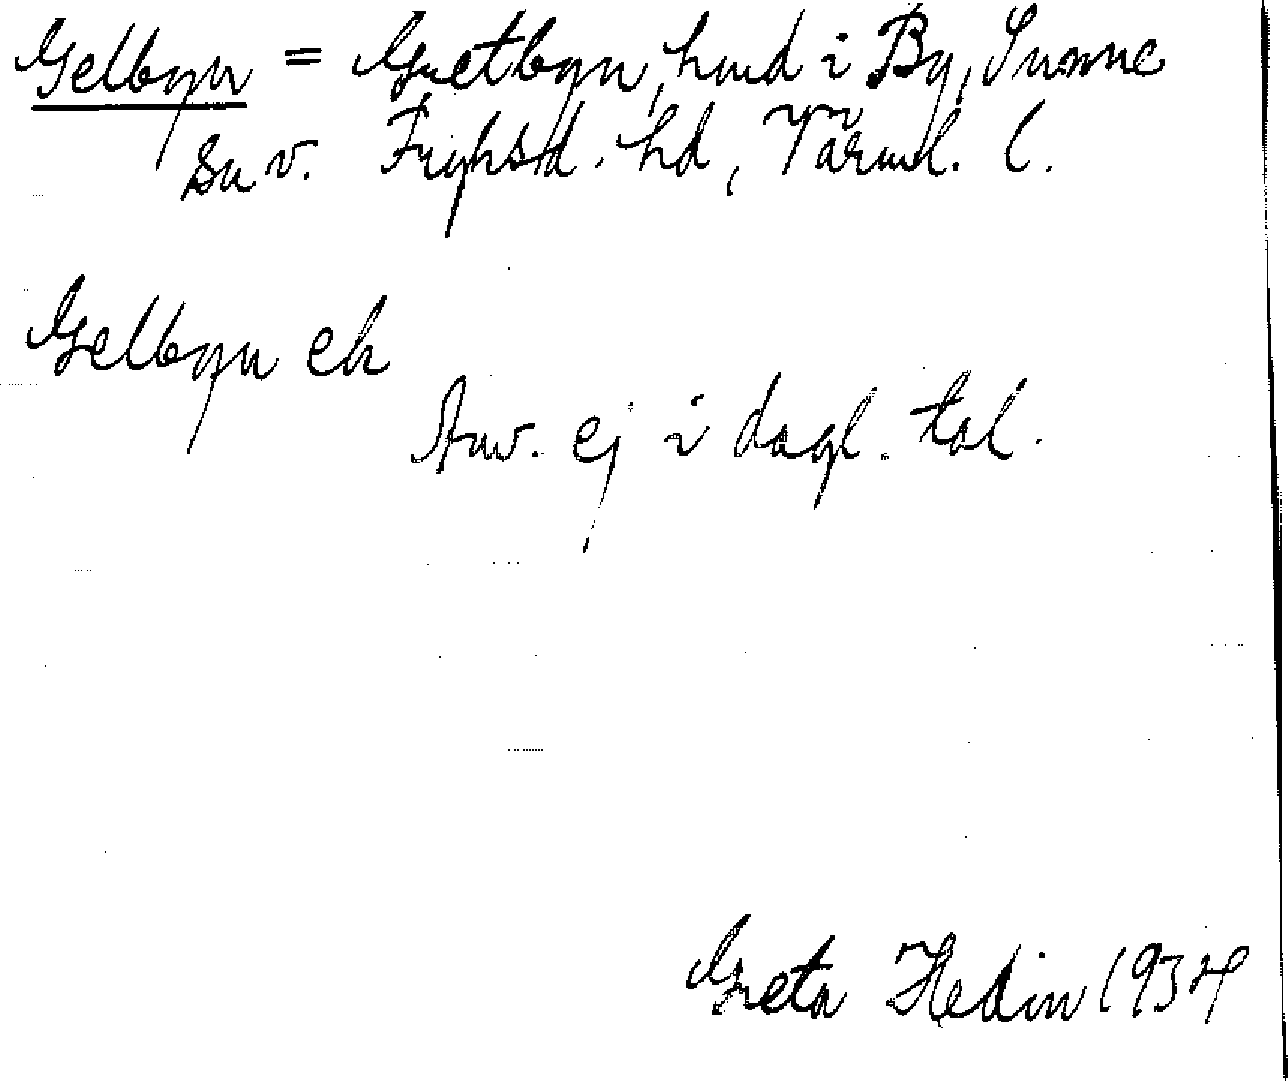 Gelbyn = Gretbyn, hmd i By, Sunne
sn v. Fryksd. hd, Värml. l.
Gelbyn ek
Anv. ej i dagl. tal.
Greta Hedin 1934